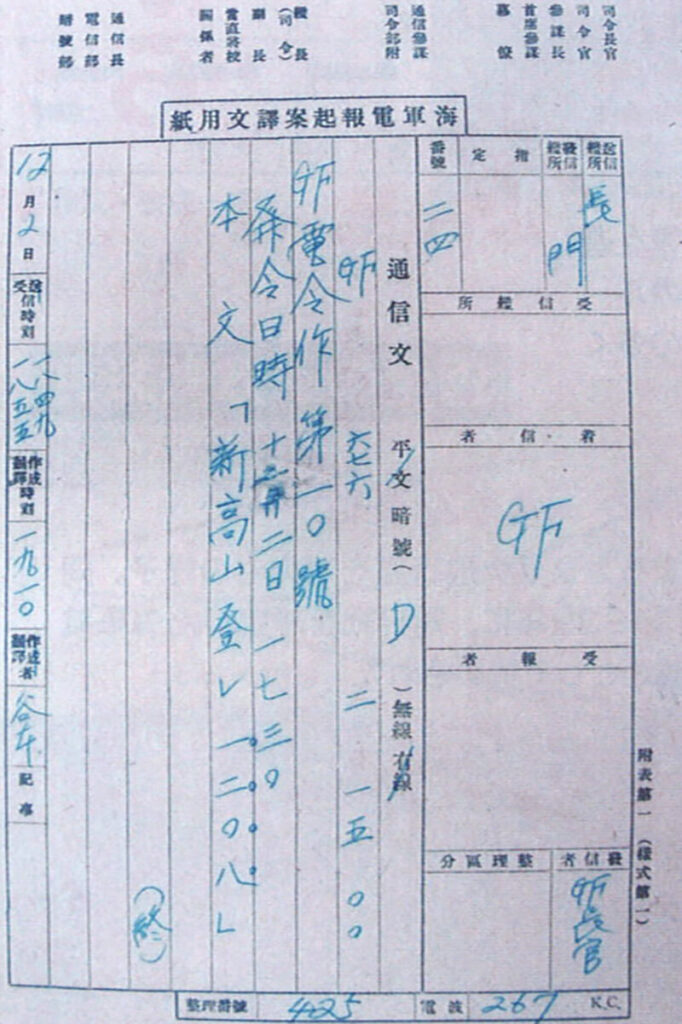 司令長官
司令官
參謀長
首席參謀
幕僚
通信參謀
司令部附
艦長
(司令)
副長
當直將校
關係者
通信長
電信部
暗號部
海軍電報起案譯文用紙
附表第一(樣式第一)
發信艦所
長門
指定
番號
二四
受信艦所
着信者
GF
受報者
發信者
GF長官
整理區分
通信文 平文暗號(D)無線有線
GF 六七六 二 一五〇〇
GF電令作第一〇號
發令日時 十二月二日 一七三〇
本文「新高山登レ 一二〇八」
(終)
12月2日
受信時刻
一八四九
一八五五
作成時刻
翻譯
一九一〇
作成者
翻譯
谷本
記事
整理番號 425
電波 267 K.C.